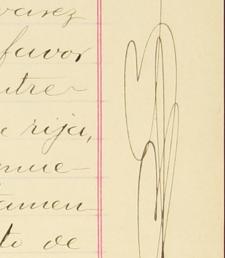 varez
favor
utre-
rija,
nue-
tamen
to de